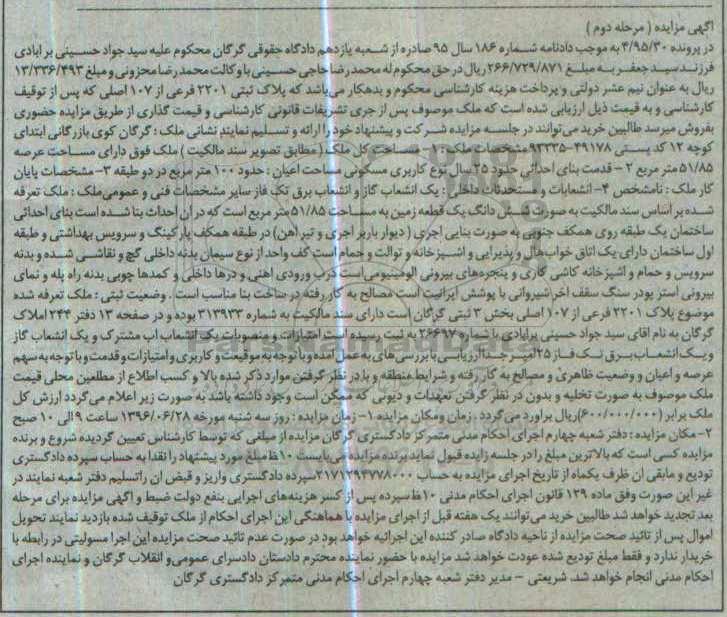 آگهی مزایده ( مرحله دوم )
در پرونده ۴/۹۵/۳۰ به موجب دادنامه شماره ۱۸۶ سال ۹۵ صادره از شعبه یازدهم دادگاه حقوقی گرگان محکوم علیه سید جواد حسینی برابادی
فرزند سید جعفر به مبلغ ۲۶۶/۷۲۹/۸۷۱ ریال در حق محکوم له محمد رضا حاجی حسینی با وکالت محمد رضا محزونی و مبلغ ۱۳/۳۳۶/۴۹۳
ریال به عنوان نیم عشر دولتی و پرداخت هزینه کارشناسی محکوم و بدهکار می‌باشد که پلاک ثبتی ۲۲۰۱ فرعی از ۱۰۷ اصلی که پس از توقیف
کارشناسی و به قیمت ذیل ارزیابی شده است که ملک موصوف پس از جری تشریفات قانونی کارشناسی و قیمت گذاری از طریق مزایده حضوری
بفروش میرسد طالبین خرید می‌توانند در جلسه مزایده شرکت و پیشنهاد خود را ارائه و تسلیم نمایند نشانی ملک : گرگان کوی بازرگانی ابتدای
کوچه ۱۲ کد پستی ۴۹۱۷۸-۹۳۳۳۵ مشخصات ملک : ۱ - مساحت کل ملک ( مطابق تصویر سند مالکیت ) ملک فوق دارای مساحت عرصه
۵۱/۸۵ متر مربع ۲ - قدمت بنای احداثی حدود ۲۵ سال نوع کاربری مسکونی مساحت اعیان : حدود ۱۰۰ متر مربع در دو طبقه ۳- مشخصات پایان
کار ملک : نامشخص ۴- انشعابات و مستحدثات داخلی : یک انشعاب گاز و انشعاب برق تک فاز سایر مشخصات فنی و عمومی ملک : ملک تعرفه
شده بر اساس سند مالکیت به صورت شش دانگ یک قطعه زمین به مساحت ۵۱/۸۵ متر مربع است که در ان احداث بنا شده است بنای احداثی
ساختمان یک طبقه روی همکف جنوبی به صورت بنایی اجری ( دیوار باربر اجری و تیر اهن) در طبقه همکف پارکینگ و سرویس بهداشتی و طبقه
اول ساختمان دارای یک اتاق خواب هال و پذیرایی و اشپزخانه و توالت و حمام است کف واحد از نوع سیمان بدنه داخلی گچ و نقاشی شده و بدنه
سرویس و حمام و اشپزخانه کاشی کاری و پنجره‌های بیرونی الومینیومی است درب ورودی اهنی و درها داخلی و کمدها چوبی بدنه راه پله و نمای
بیرونی استر پودر سنگ سقف اخر شیروانی با پوشش ایرانیت است مصالح به کار رفته در ساخت بنا مناسب است . وضعیت ثبتی : ملک تعرفه شده
موضوع پلاک ۲۲۰۱ فرعی از ۱۰۷ اصلی بخش ۳ ثبتی گرگان است دارای سند مالکیت به شماره ۳۱۳۹۳۳ بوده و در صفحه ۱۳ دفتر ۲۴۴ املاک
گرگان به نام اقای سید جواد حسینی برابادی با شماره ۲۶۶۹۷ به ثبت رسیده است امتیازات و منصوبات یک انشعاب اب مشترک و یک انشعاب گاز
و یک انشعاب برق تک فاز ۲۵ امپر جدا ارزیابی با بررسی های به عمل آمده و با توجه به موقعیت و کاربری و امتیازات و قدمت و با توجه به سهم
عرصه و اعیان و وضعیت ظاهری و مصالح به کار رفته و شرایط منطقه و با در نظر گرفتن موارد ذکر شده بالا و کسب اطلاع از مطلعین محلی قیمت
ملک موصوف به صورت تخلیه و بدون در نظر گرفتن تعهدات و دیونی که ممکن است وجود داشته باشد به صورت زیر اعلام می‌گردد ارزش کل
ملک برابر (۶۰۰/۰۰۰/۰۰۰)ریال براورد می‌گردد . زمان ومکان مزایده ۱- زمان مزایده : روز سه شنبه مورخه ۱۳۹۶/۰۶/۲۸ ساعت ۹ الی ۱۰ صبح
۲- مکان مزایده : دفتر شعبه چهارم اجرای احکام مدنی متمرکز دادگستری گرگان مزایده از مبلغی که توسط کارشناس تعیین گردیده شروع و برنده
مزایده کسی است که بالاترین مبلغ را در جلسه زایده قبول نماید برنده مزایده می‌بایست ۱۰٪ مبلغ مورد پیشنهاد را نقدا به حساب سپرده دادگستری
تودیع و مابقی ان ظرف یکماه از تاریخ اجرای مزایده به حساب ۲۱۷۱۲۹۴۷۷۸۰۰۰ سپرده دادگستری واریز و قبض ان را تسلیم دفتر شعبه نمایند در
غیر این صورت وفق ماده ۱۲۹ قانون اجرای احکام مدنی ۱۰٪ سپرده پس از کسر هزینه‌های اجرایی بنفع دولت ضبط و اگهی مزایده برای مرحله
بعد تجدید خواهد شد طالبین خرید می‌توانند یک هفته قبل از اجرای مزایده با هماهنگی این اجرای احکام از ملک توقیف شده بازدید نمایند تحویل
اموال پس از تائید صحت مزایده از ناحیه دادگاه صادر کننده این اجرائیه خواهد بود در صورت عدم تائید صحت مزایده این اجرا مسولیتی در رابطه با
خریدار ندارد و فقط مبلغ تودیع شده عودت خواهد شد مزایده با حضور نماینده محترم دادستان دادسرای عمومی و انقلاب گرگان و نماینده اجرای
احکام مدنی انجام خواهد شد. شریعتی - مدیر دفتر شعبه چهارم اجرای احکام مدنی متمرکز دادگستری گرگان